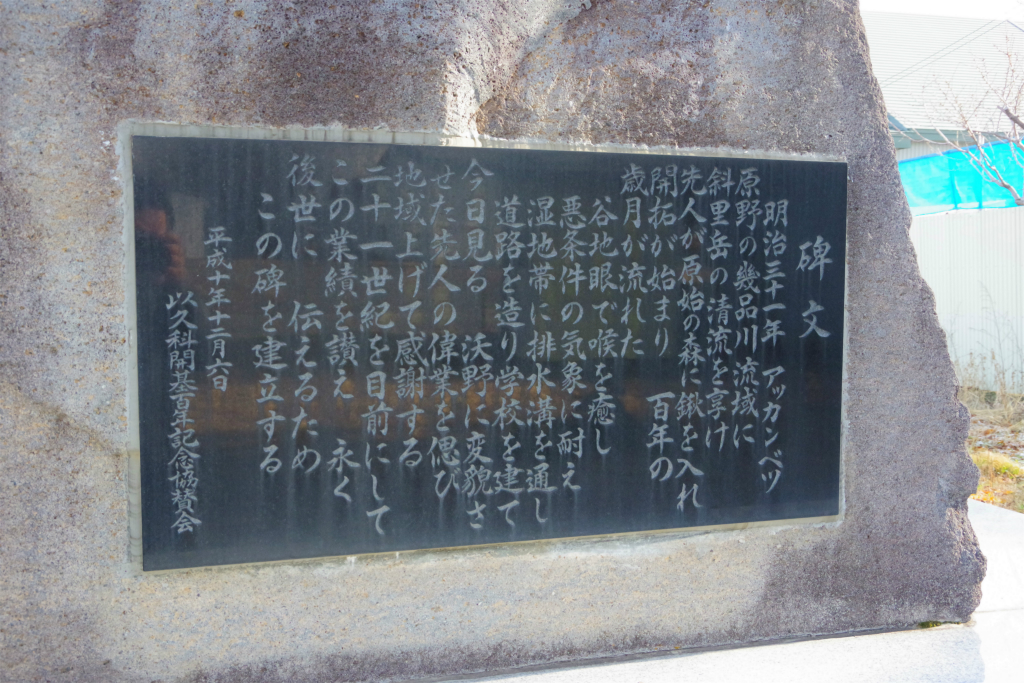 碑文
明治三十一年 アッカンベツ
原野の幾品川流域に
斜里岳の清流を享け
先人が原始の森に鍬を入れ
開拓が始まり 百年の
歳月が流れた
谷地眼で喉を癒し
悪条件の気象に耐え
湿地帯に排水溝を通し
道路を造り学校を建て
今日見る 沃野に変貌さ
せた先人の偉業を偲び
地域上げて感謝する
二十一世紀を目前にして
この業績を讃え 永く
後世に 伝えるため
この碑を建立する
平成十年十二月六日
以久科開基百年記念協賛会